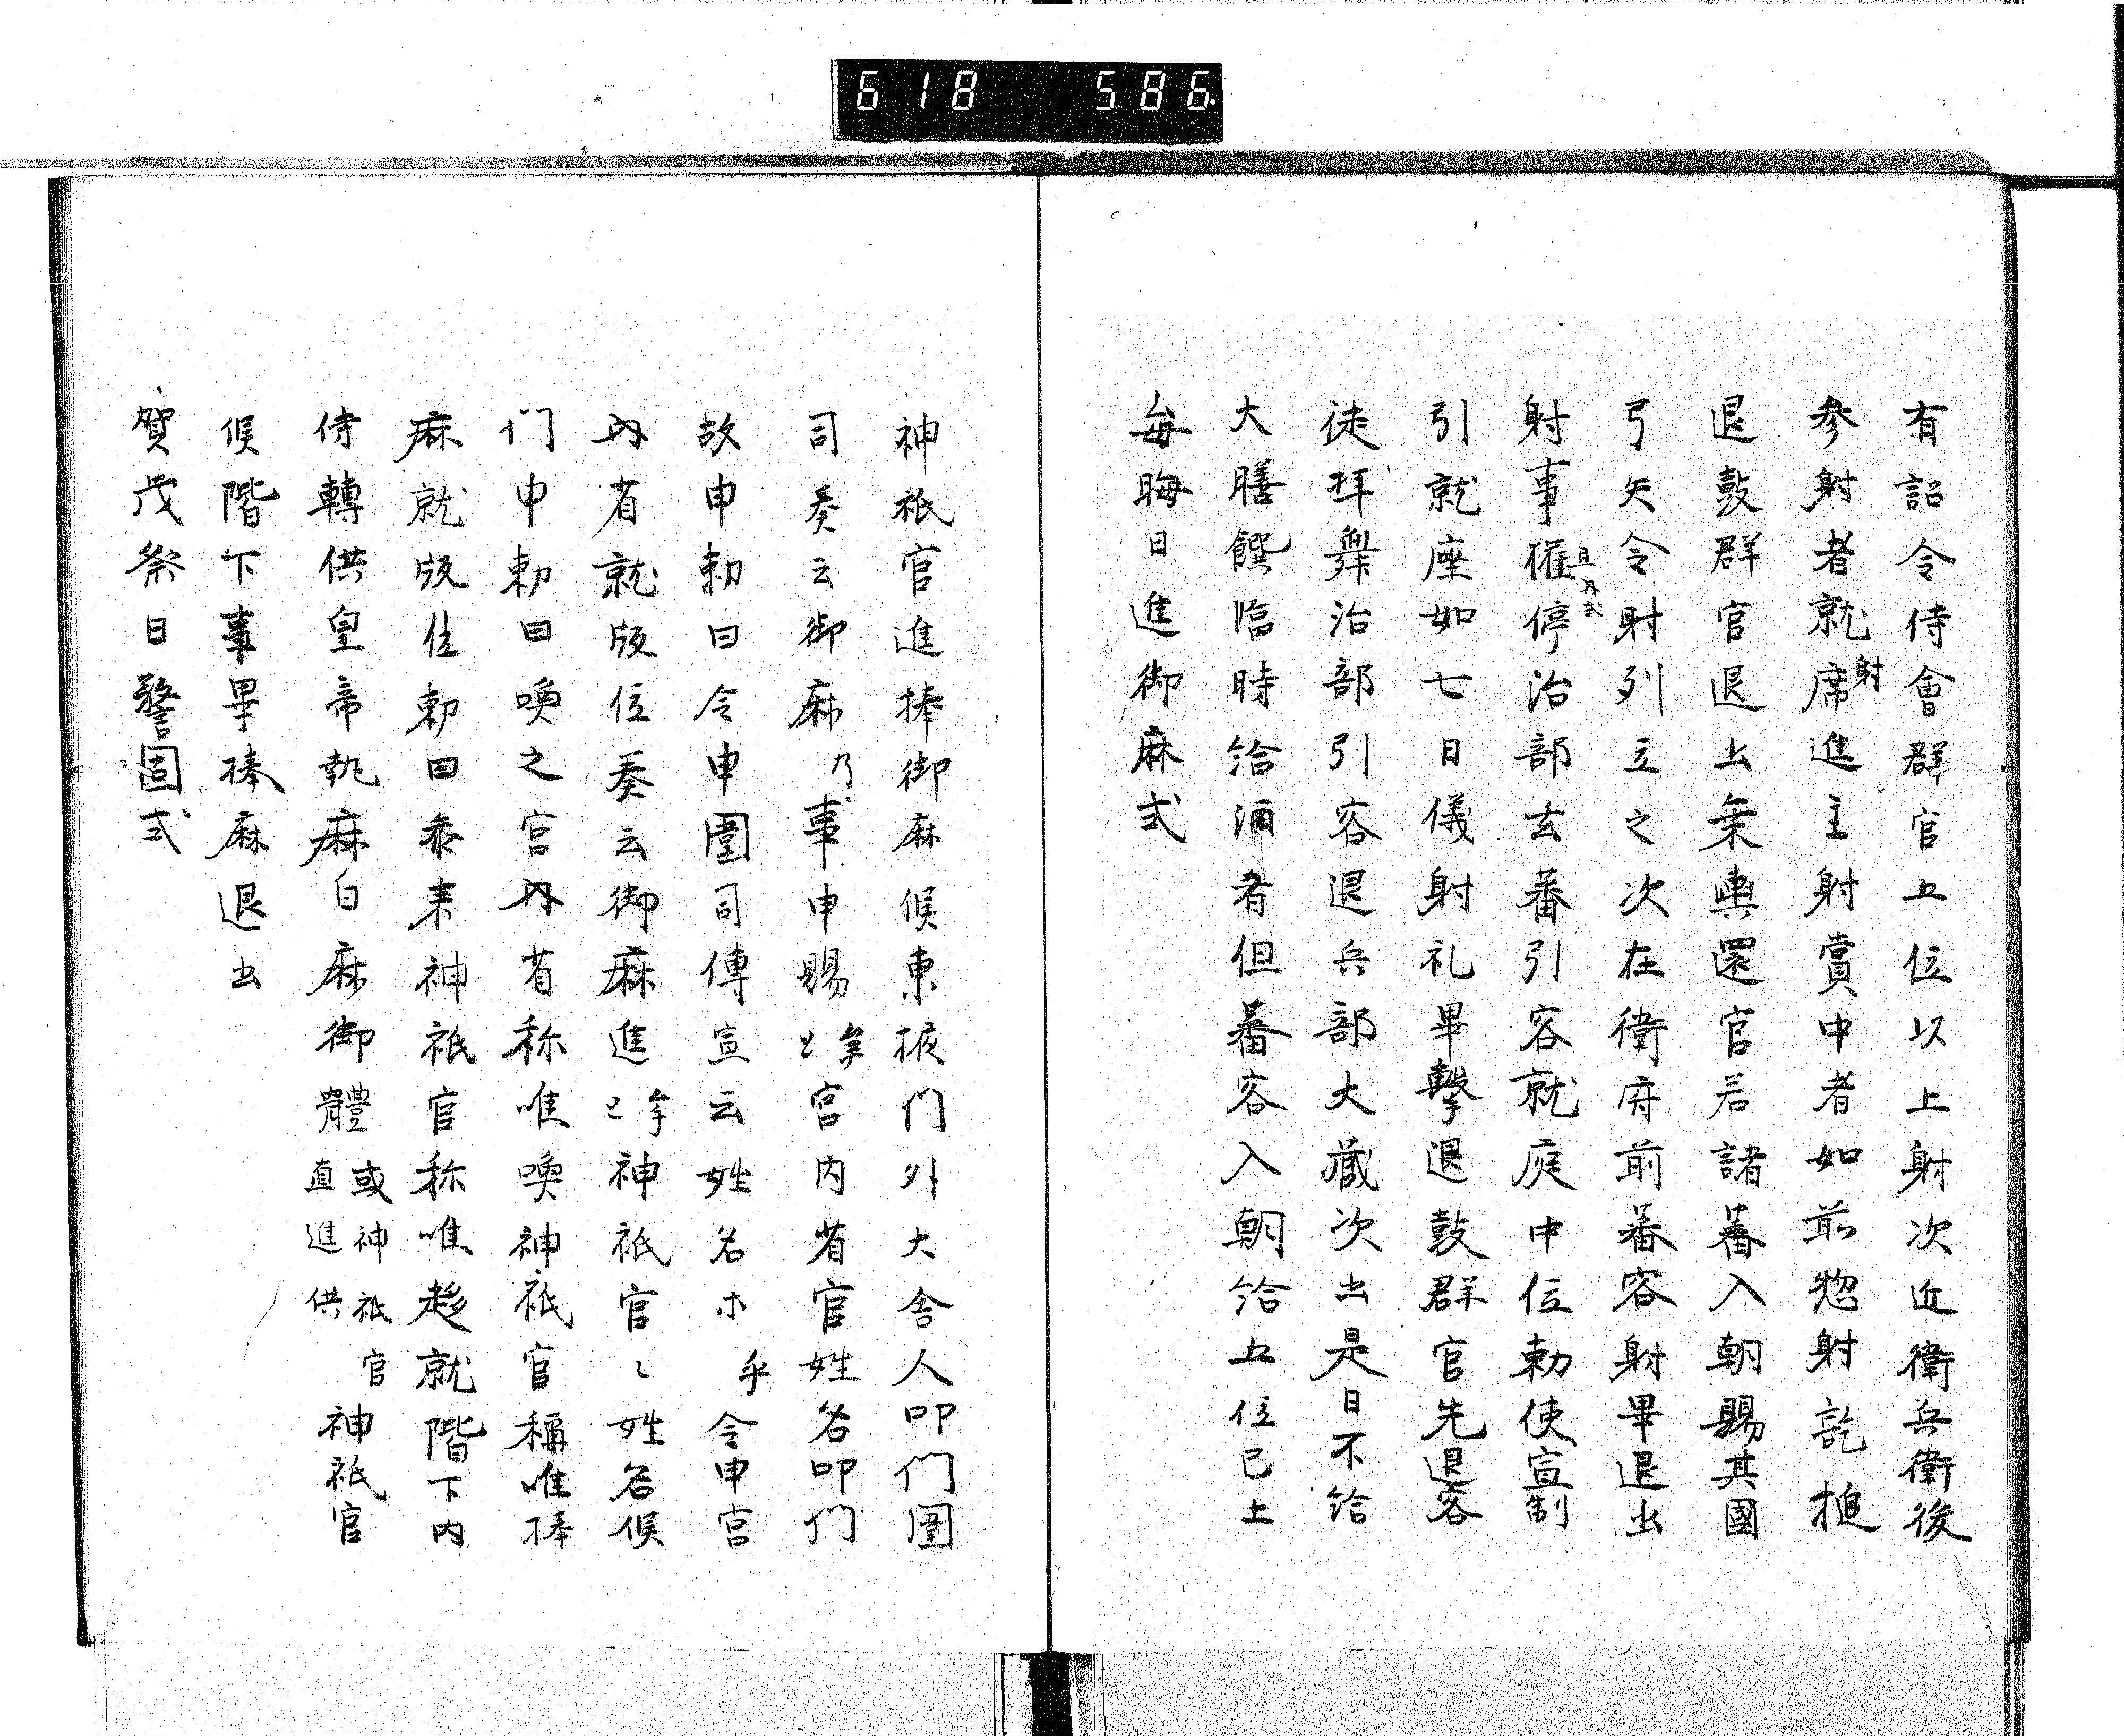 618 586
有詔令侍會群官五位以上射次近衛兵衛後
参射者就射席進主射賞中者如前惣射訖搥
退皷群官退出乗輿還官若諸蕃入朝賜其國
弓矢令射列立之次在衛府前蕃容射畢退出
射事權停治部玄蕃引容就庭中位勅使宣制
引就座如七日儀射礼畢擊退皷群官先退容
徒拜舞治部引容退兵部大蔵次出是日不給
大膳饌臨時給酒肴但蕃容入朝給五位已上
毎晦日進御麻式
神祇官進捧御麻候東掖門外大舎人叩門闈
司奏云御麻乃事申賜止宮内省官姓名叩門
故申勅曰令申闈司傳宣云姓名ホ乎令申宮
内省就版位奏云御麻進止神祇官〻姓名候
門申勅曰喚之宮内省称唯喚神祇官稱唯捧
麻就版位勅曰参来神祇官称唯趍就階下内
侍轉供皇帝執麻自麻御體或神祇官直進供神祇官
候階下事畢捧麻退出
賀茂祭日警固式